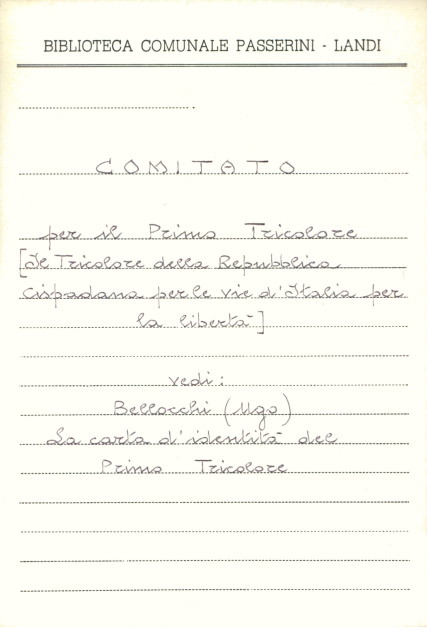 BIBLIOTECA COMUNALE PASSERINI - LANDI
COMITATO
per il Primo Tricolore
[Il Tricolore della Repubblica
Cispadana per le vie d'Italia per
la libertà]
vedi:
Bellocchi (Ugo)
La carta d'identità del
Primo Tricolore